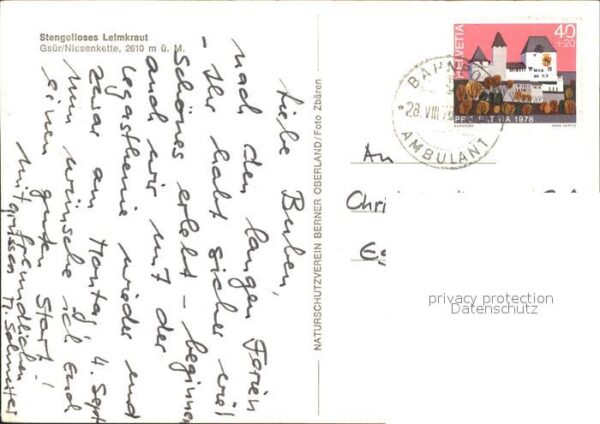 Stengelloses Leimkraut
Gsür/Niesenkette, 2610 m ü. M.
Liebe Buben,
nach den langen Ferien
- Ihr habt sicher viel
Schönes erlebt - beginnen
auch wir mit der
Legasthenie wieder und
zwar am Montag, 4. Sept.
Nun wünsche ich Euch
einen guten Start!
Mit freundlichen
Grüssen
NATURSCHUTZVEREIN BERNER OBERLAND/Foto Zbären
HELVETIA
40
+20
PRO PATRIA 1978
BURGDORF
BAHNPO
28.VIII.7
AMBULANT
An
Chri
Eg
privacy protection
Datenschutz